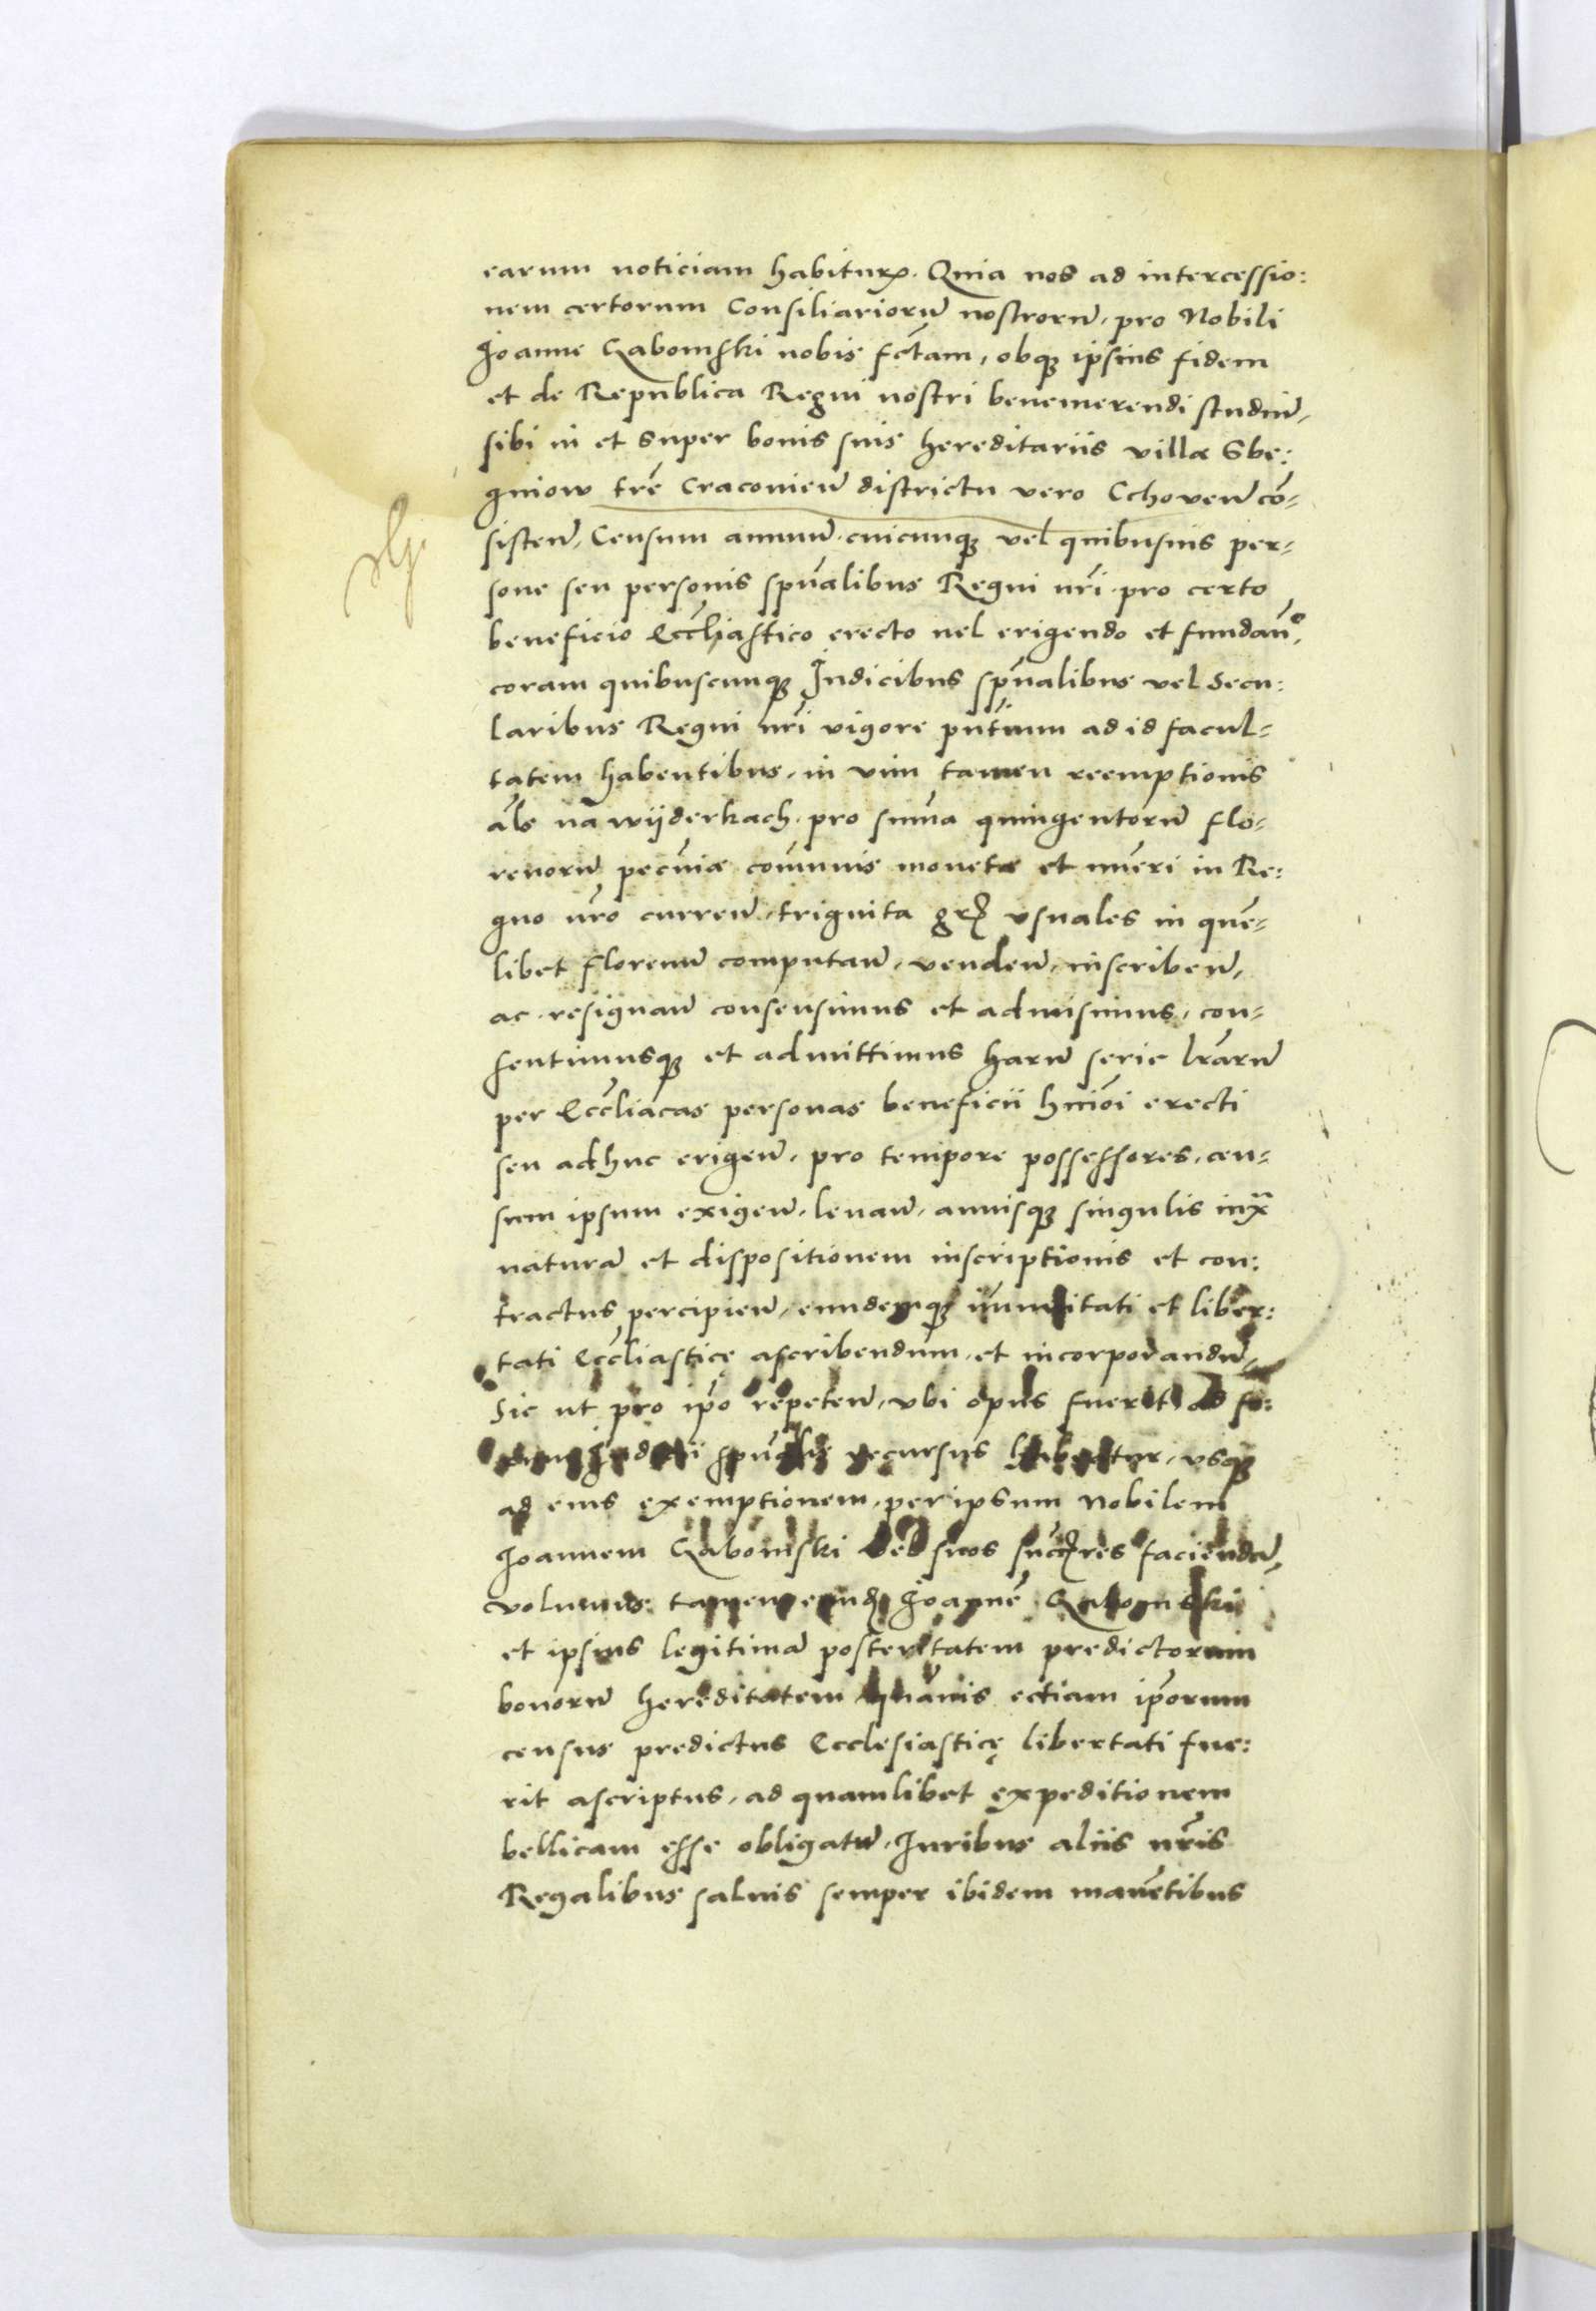 earum noticiam habiturꝭ. Quia nos ad intercessio:
nem certorum Consiliariorū nostrorū, pro Nobili
Joanne Qabomski nobis fctam, obqꝫ ipsius fidem
et de Republica Regni nostri benemerendi studiū,
sibi in et super bonis suis hereditariis villæ Sbe:
gniow tre̅ Cracovien̅ districtu vero Cchoven̅ co̅-
sisten̅, Censum annuū cuicunqꝫ vel quibusuis per-
sone seu personis sp̅ualibus Regni nr̅i pro certo
beneficio Eccl̅iastico erecto uel erigendo et fundan̅,
coram quibuscunqꝫ Judicibus sp̅ualibus vel Secu:
laribus Regni nr̅i vigore pn̅tium ad id facul-
tatem habentibus, in vim tamen reemptionis
al̅s na wijderkach pro sum̅a quingentorū flo-
renorū pecu̅iæ com̅unis monetæ et nu̅eri in Re:
gno nr̅o curren̅, triginta gꝛꝭ vsuales in que̅-
libet florenū computan̅, venden̅, inscriben̅,
ac resignan̅ consensimus et admisimus, con-
sentimusqꝫ et admittimus harū serie lr̅arū
per Eccl̅iacas personas beneficii hm̅oi erecti
seu adhuc erigen̅, pro tempore possessores, cen-
sum ipsum exigen̅, levan̅, annisqꝫ singulis iuxᵃ
naturā et dispositionem inscriptionis et con:
tractus percipien̅, eundemqꝫ im̅unitati et liber:
tati Eccl̅iasticę ascribendum et incorporandū,
Sic ut pro ip̅o repeten̅, vbi opus fuerit ad fo:
rum Judicii sp̅ualis recursus habeatur, vsqꝫ
ad eius exemptionem, per ipsum Nobilem
Joannem Qabomski vel suos succꝭres faciendā,
volumus tamen eundꝭ Joanne̅ Qabomski
et ipsius legitimā posteritatem predictorum
bonorū hereditatem quāuis ectiam ip̅orum
census predictus Ecclesiasticę libertati fue:
rit ascriptus, ad quamlibet expeditionem
bellicam esse obligatū, Juribus aliis nr̅is
Regalibus saluis semper ibidem mane̅tibus